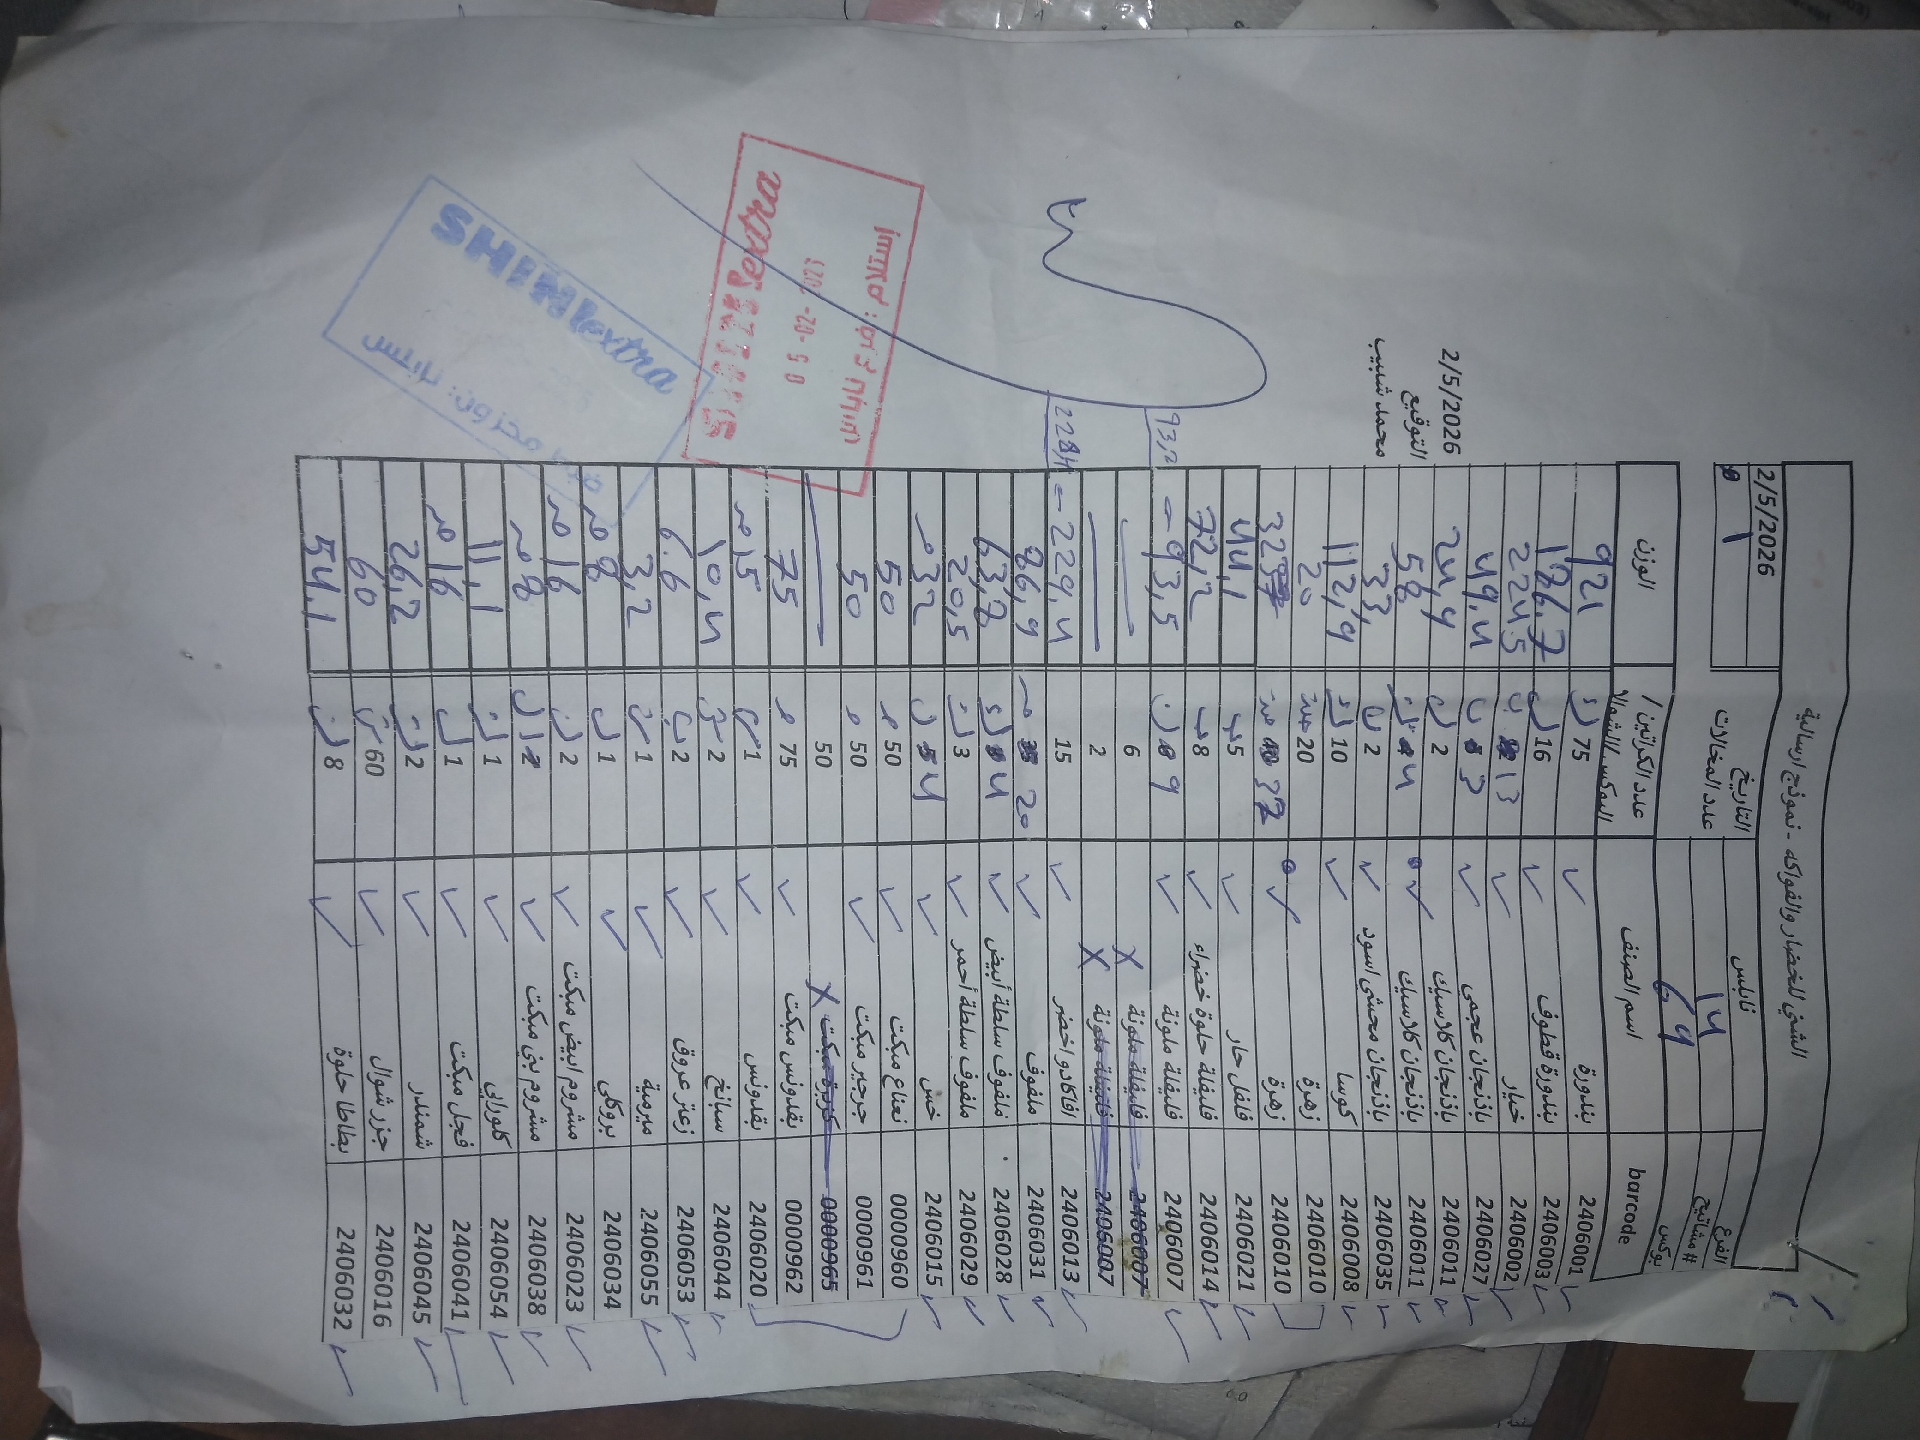 الشني للخضار والفواكه - نموذج ارسالية
الفرع نابلس التاريخ 2/5/2026
# مشاتيح 14 عدد المخالات 1
بوكس 64
barcode اسم الصنف عدد الكراتين / البوكس / الشوالا الوزن
2406001 بندورة 75 921
2406003 بندورة قطوف 16 186,7
2406002 خيار 13 224,5
2406027 باذنجان عجمي 3 49,4
2406011 باذنجان كلاسيك 2 24,4
2406011 باذنجان كلاسيك 4 58
2406035 باذنجان محشي اسود 2 33
2406008 كوسا 10 112,9
2406010 زهرة 20 20
2406010 زهرة 32
2406021 فلفل حار 5 44,1
2406014 فليفلة حلوة خضراء 8 72,2
2406007 فليفلة ملونة 9 93,5 93,2
2406007 فليفلة ملونة 6
2406007 فليفلة ملونة 2
2406013 افاكادو اخضر 15 229,4 228,4
2406031 ملفوف 20 86,9
2406028 ملفوف سلطة أبيض 4 63,7
2406029 ملفوف سلطة أحمر 3 20,5
2406015 خس 4 32
0000960 نعناع مبكت 50 50
0000961 جرجير مبكت 50 50
0000965 كزبرة مبكت 50
0000962 بقدونس مبكت 75 75
2406020 بقدونس 1 15
2406044 سبانخ 2 10,4
2406053 زعتر عروق 2 6.6
2406055 ميرمية 1 3,2
2406034 بروكلي 1 8
2406023 مشروم ابيض مبكت 2 16
2406038 مشروم بني مبكت 8
2406054 كلورابي 1 11,1
2406041 فجل مبكت 1 16
2406045 شمندر 2 26,2
2406016 جزر شوال 60 60
2406032 بطاطا حلوة 8 54,1
2/5/2026
التوقيع
محمد شبيب
extra
-02-2023
SHINIextra